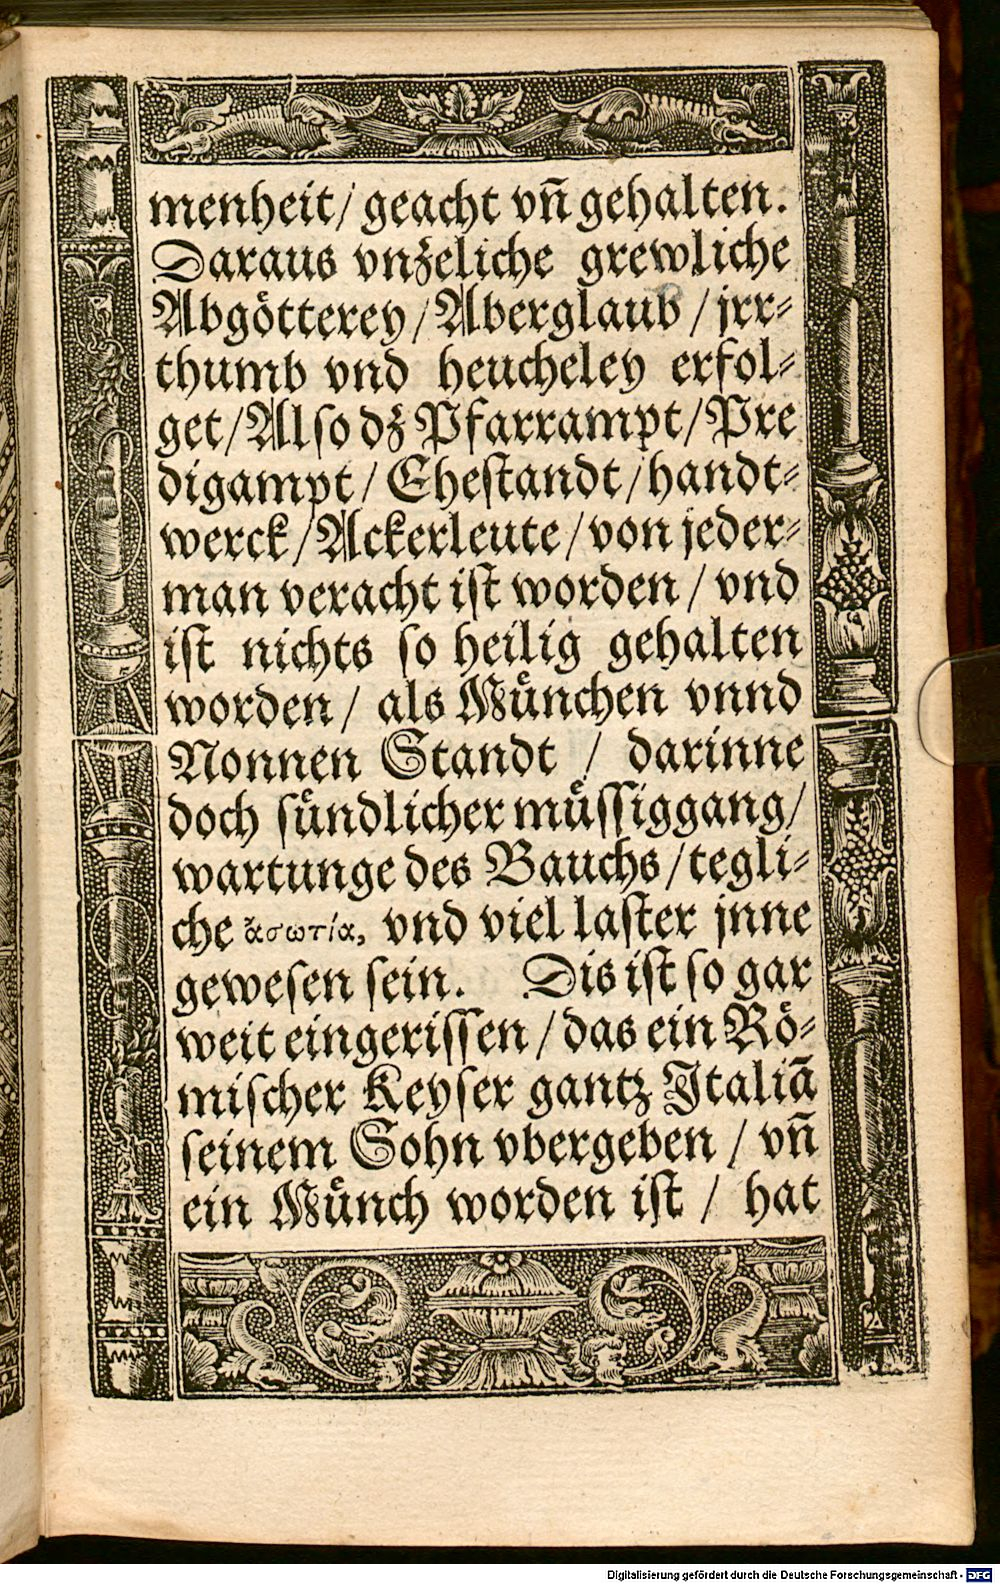 menheit / geacht vñ gehalten.
Daraus vnzeliche grewliche
Abgötterey / Aberglaub / jrr-
thumb vnd heucheley erfol-
get / Also dz Pfarrampt / Pre
digampt / Ehestandt / handt-
werck / Ackerleute / von jeder-
man veracht ist worden / vnd
ist nichts so heilig gehalten
worden / als München vnnd
Nonnen Standt / darinne
doch sündlicher müssiggang /
wartunge des Bauchs / tegli-
che ἀσωτία, vnd viel laster jnne
gewesen sein. Dis ist so gar
weit eingerissen / das ein Rö-
mischer Keyser gantz Italiā
seinem Sohn vbergeben / vñ
ein Münch worden ist / hat
Digitalisierung gefördert durch die Deutsche Forschungsgemeinschaft - DFG